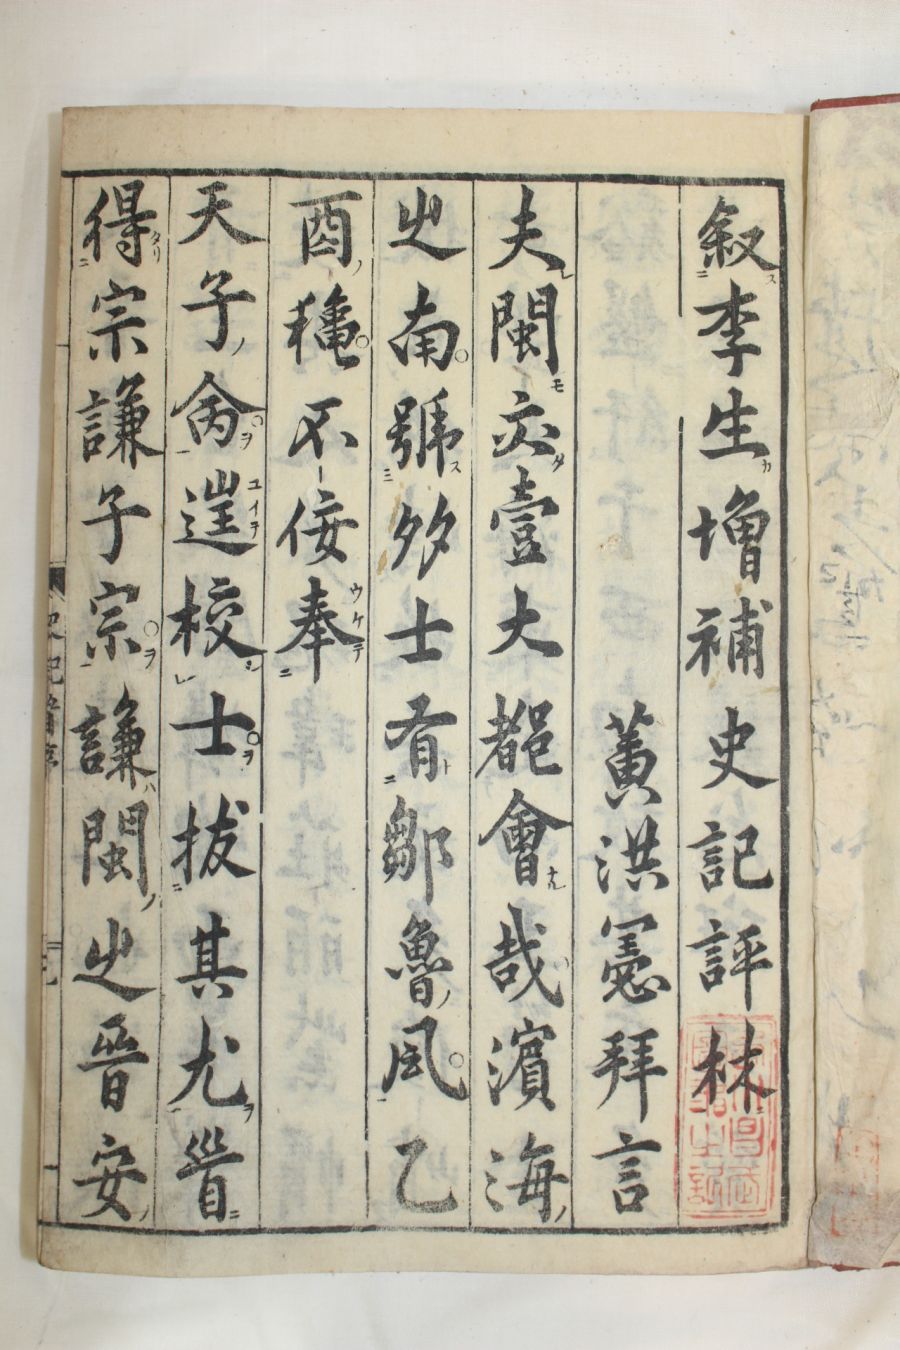 叙李生增補史記評林
黃洪憲拜言
夫閩亦壹大都會哉濱海
之南號多士有鄒魯風乙
酉穐不佞奉
天子命往校士拔其尤首
得宗謙子宗謙閩之晉安